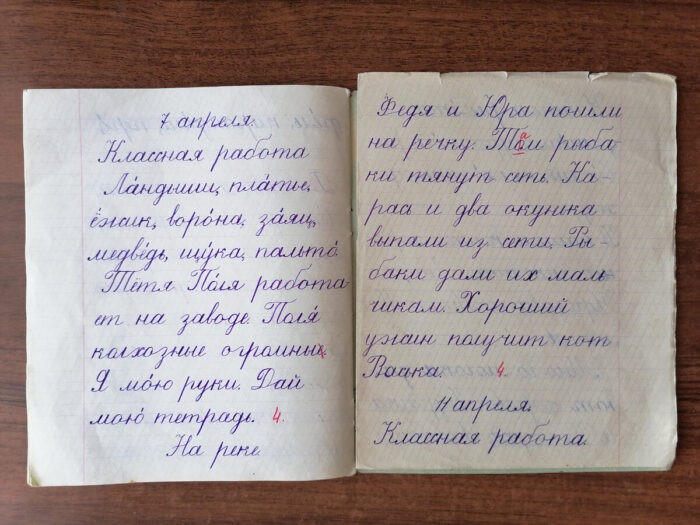 7 апреля.
Классная работа
Ла́ндыши, пла́тье,
ёжик, воро́на, за́яц,
медве́дь, щу́ка, пальто́.
Тётя По́ля работа-
ет на заводе. Поля́
колхозные огромные.
Я мо́ю руки. Дай
мою́ тетрадь. 4.
На реке.
Федя и Юра пошли
на речку. Там рыба
ки тянут сеть. Ка-
рась и два окунька
выпали из сети. Ры
баки дали их маль
чикам. Хороший
ужин получит кот
Васька. 4.
11 апреля.
Классная работа